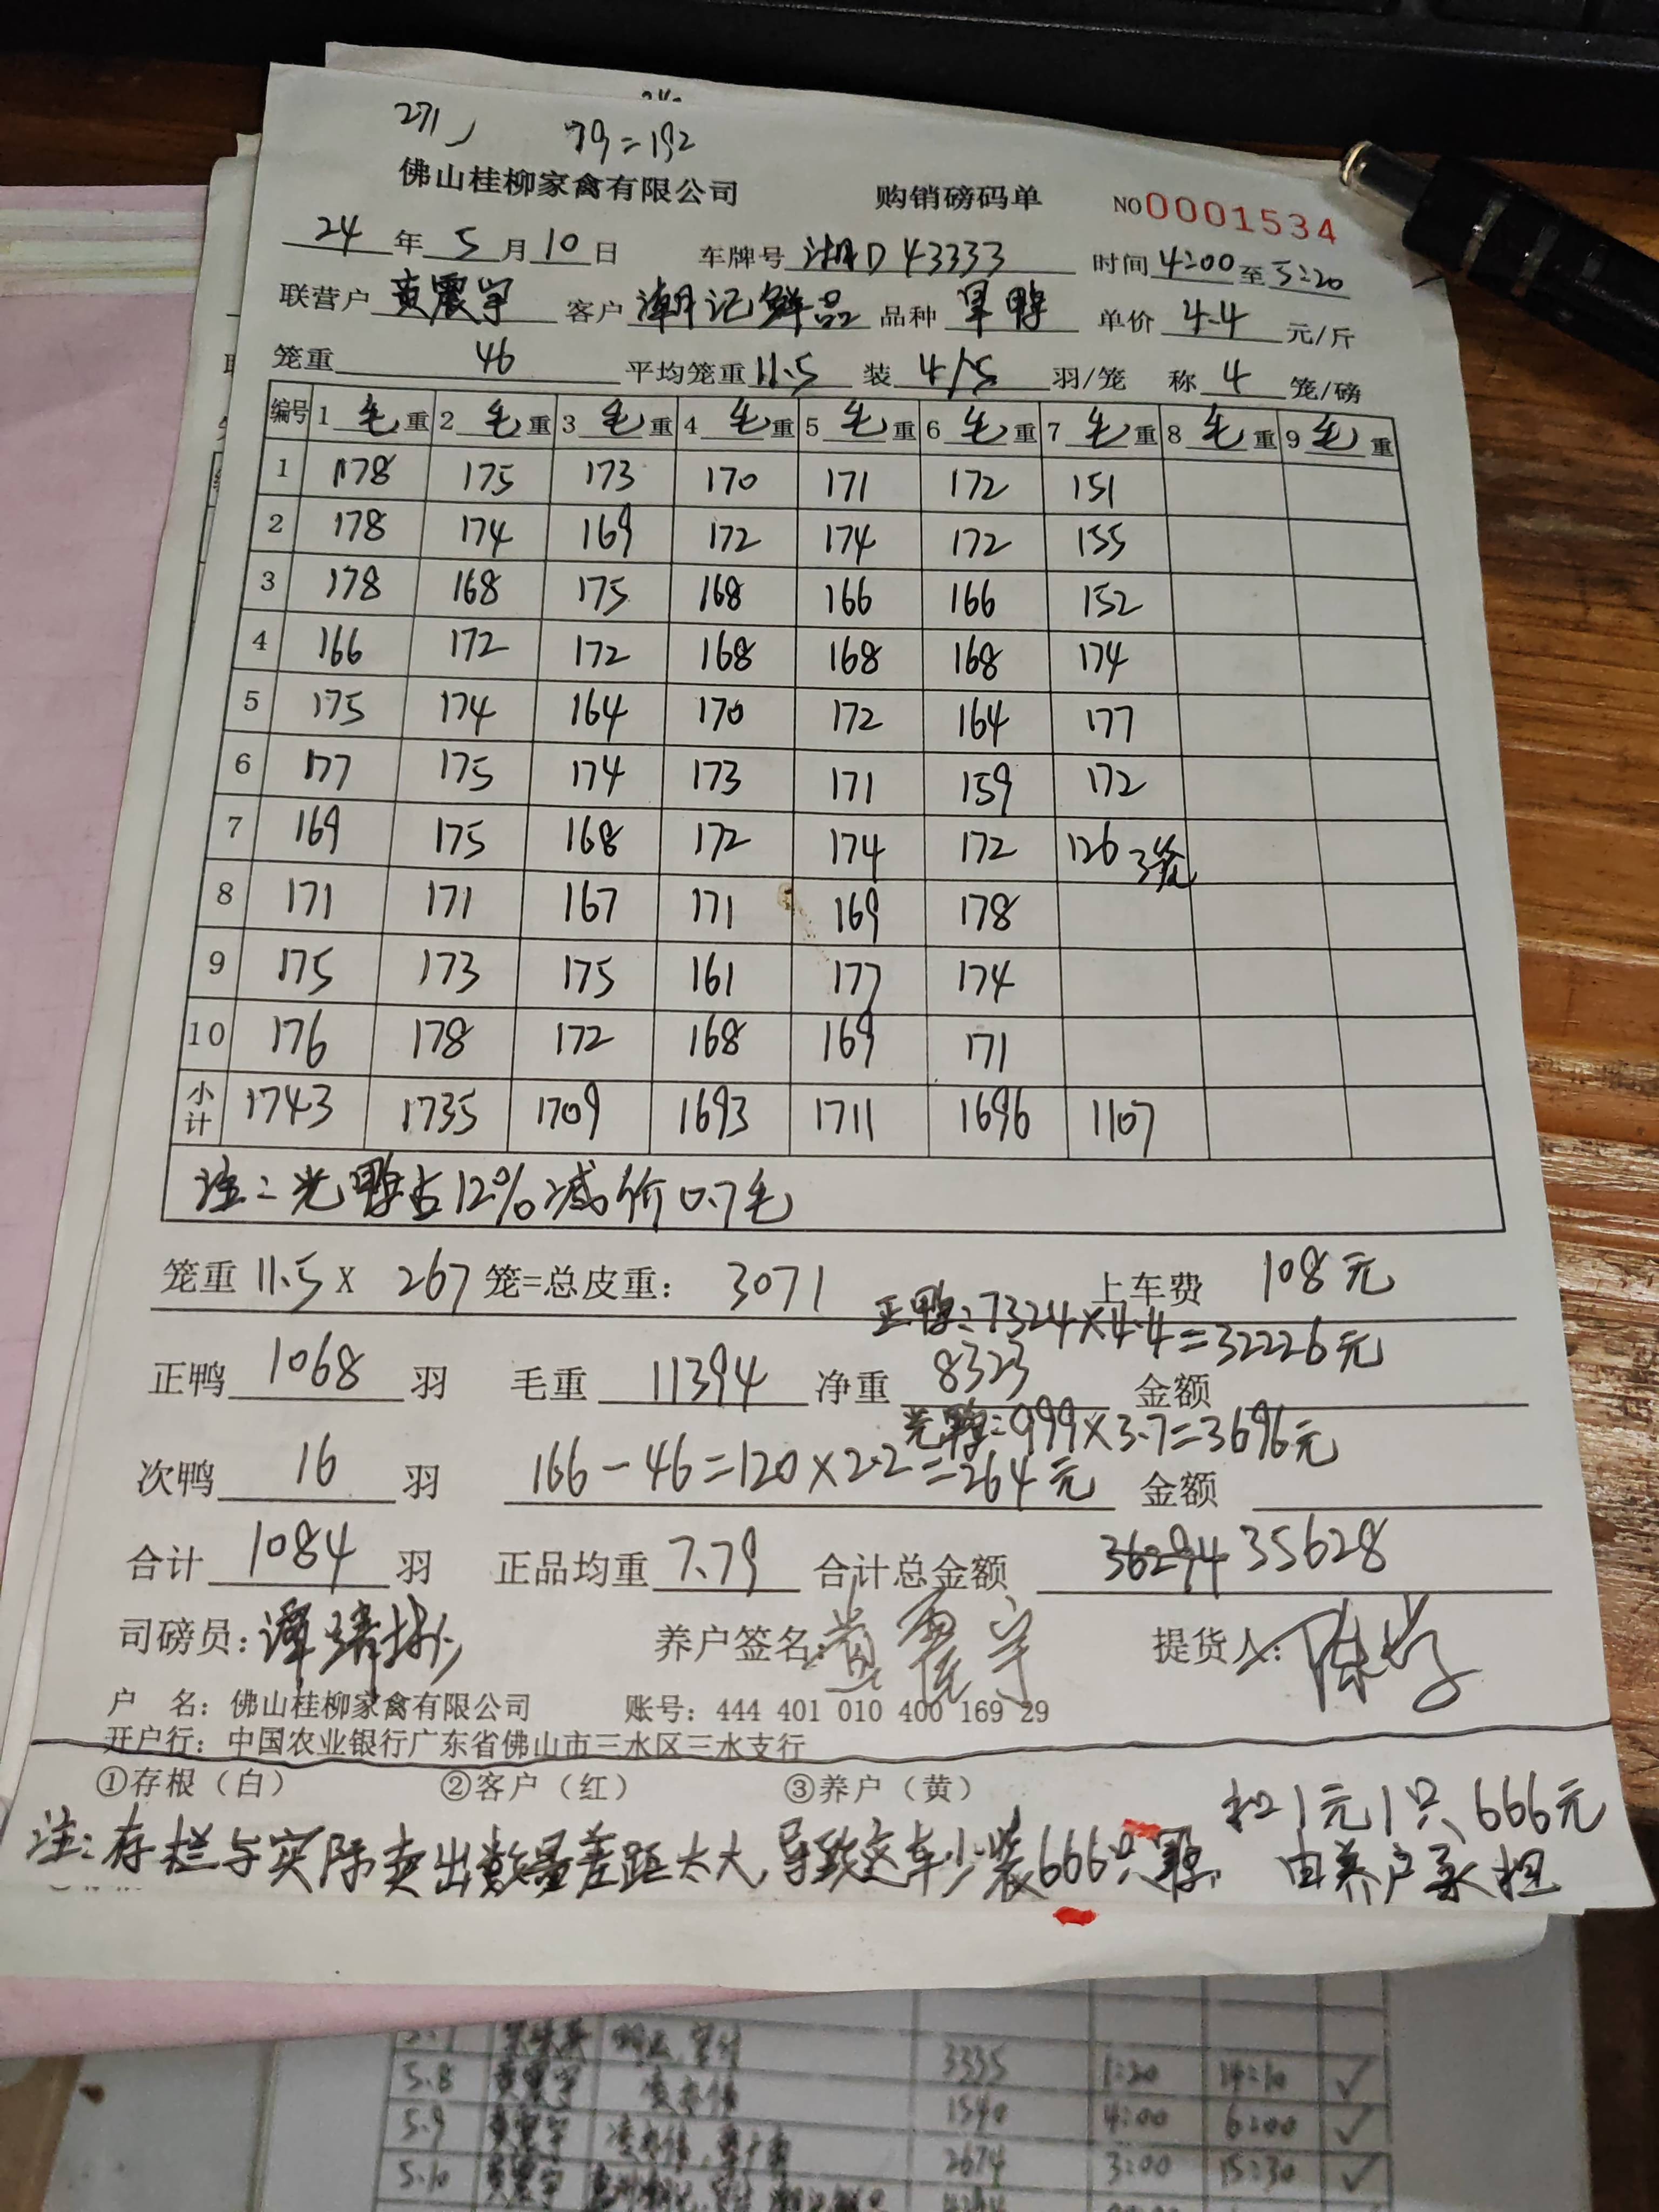 271 79=192
佛山桂柳家禽有限公司 购销磅码单 NO0001534
24年5月10日 车牌号 湘D43333 时间4:00至5:20
联营户 黄震宇 客户 潮记鲜品 品种 单价 4.4 元/斤
笼重 46 平均笼重11.5 装 4/5 羽/笼 称 4 笼/磅
编号 1 毛 重 2 毛 重 3 毛 重 4 毛 重 5 毛 重 6 毛 重 7 毛 重 8 毛 重 9 毛 重
1 178 175 173 170 171 172 151
2 178 174 169 172 174 172 155
3 178 168 175 168 166 166 152
4 166 172 172 168 168 168 174
5 175 174 164 170 172 164 177
6 177 175 174 173 171 159 172
7 169 175 168 172 174 172 126 3笼
8 171 171 167 171 169 178
9 175 173 175 161 177 174
10 176 178 172 168 169 171
小计 1743 1735 1709 1693 1711 1696 1107
注:光鸭占12%减价0.7毛
笼重 11.5 X 267 笼=总皮重: 3071 上车费 108元
正鸭:7324×4.4=32226元
正鸭 1068 羽 毛重 11394 净重 8323 金额
光鸭:999×3.7=3696元
次鸭 16 羽 166-46=120×2.2=264元 金额
合计 1084 羽 正品均重 7.79 合计总金额 36294 35628
司磅员: 养户签名: 黄震宇 提货人:
户 名: 佛山桂柳家禽有限公司 账号: 444 401 010 400 169 29
开户行: 中国农业银行广东省佛山市三水区三水支行
①存根（白） ②客户（红） ③养户（黄）
扣1元1只,666元
注:存栏与实际卖出数量差距太大,导致这车少装666只鸭. 由养户承担
3335 1:20 14:10 ✓
5.8 黄震宇 1540 4:00 6:00 ✓
5.9 黄震宇 2674 3:00 15:30 ✓
5.10 黄震宇